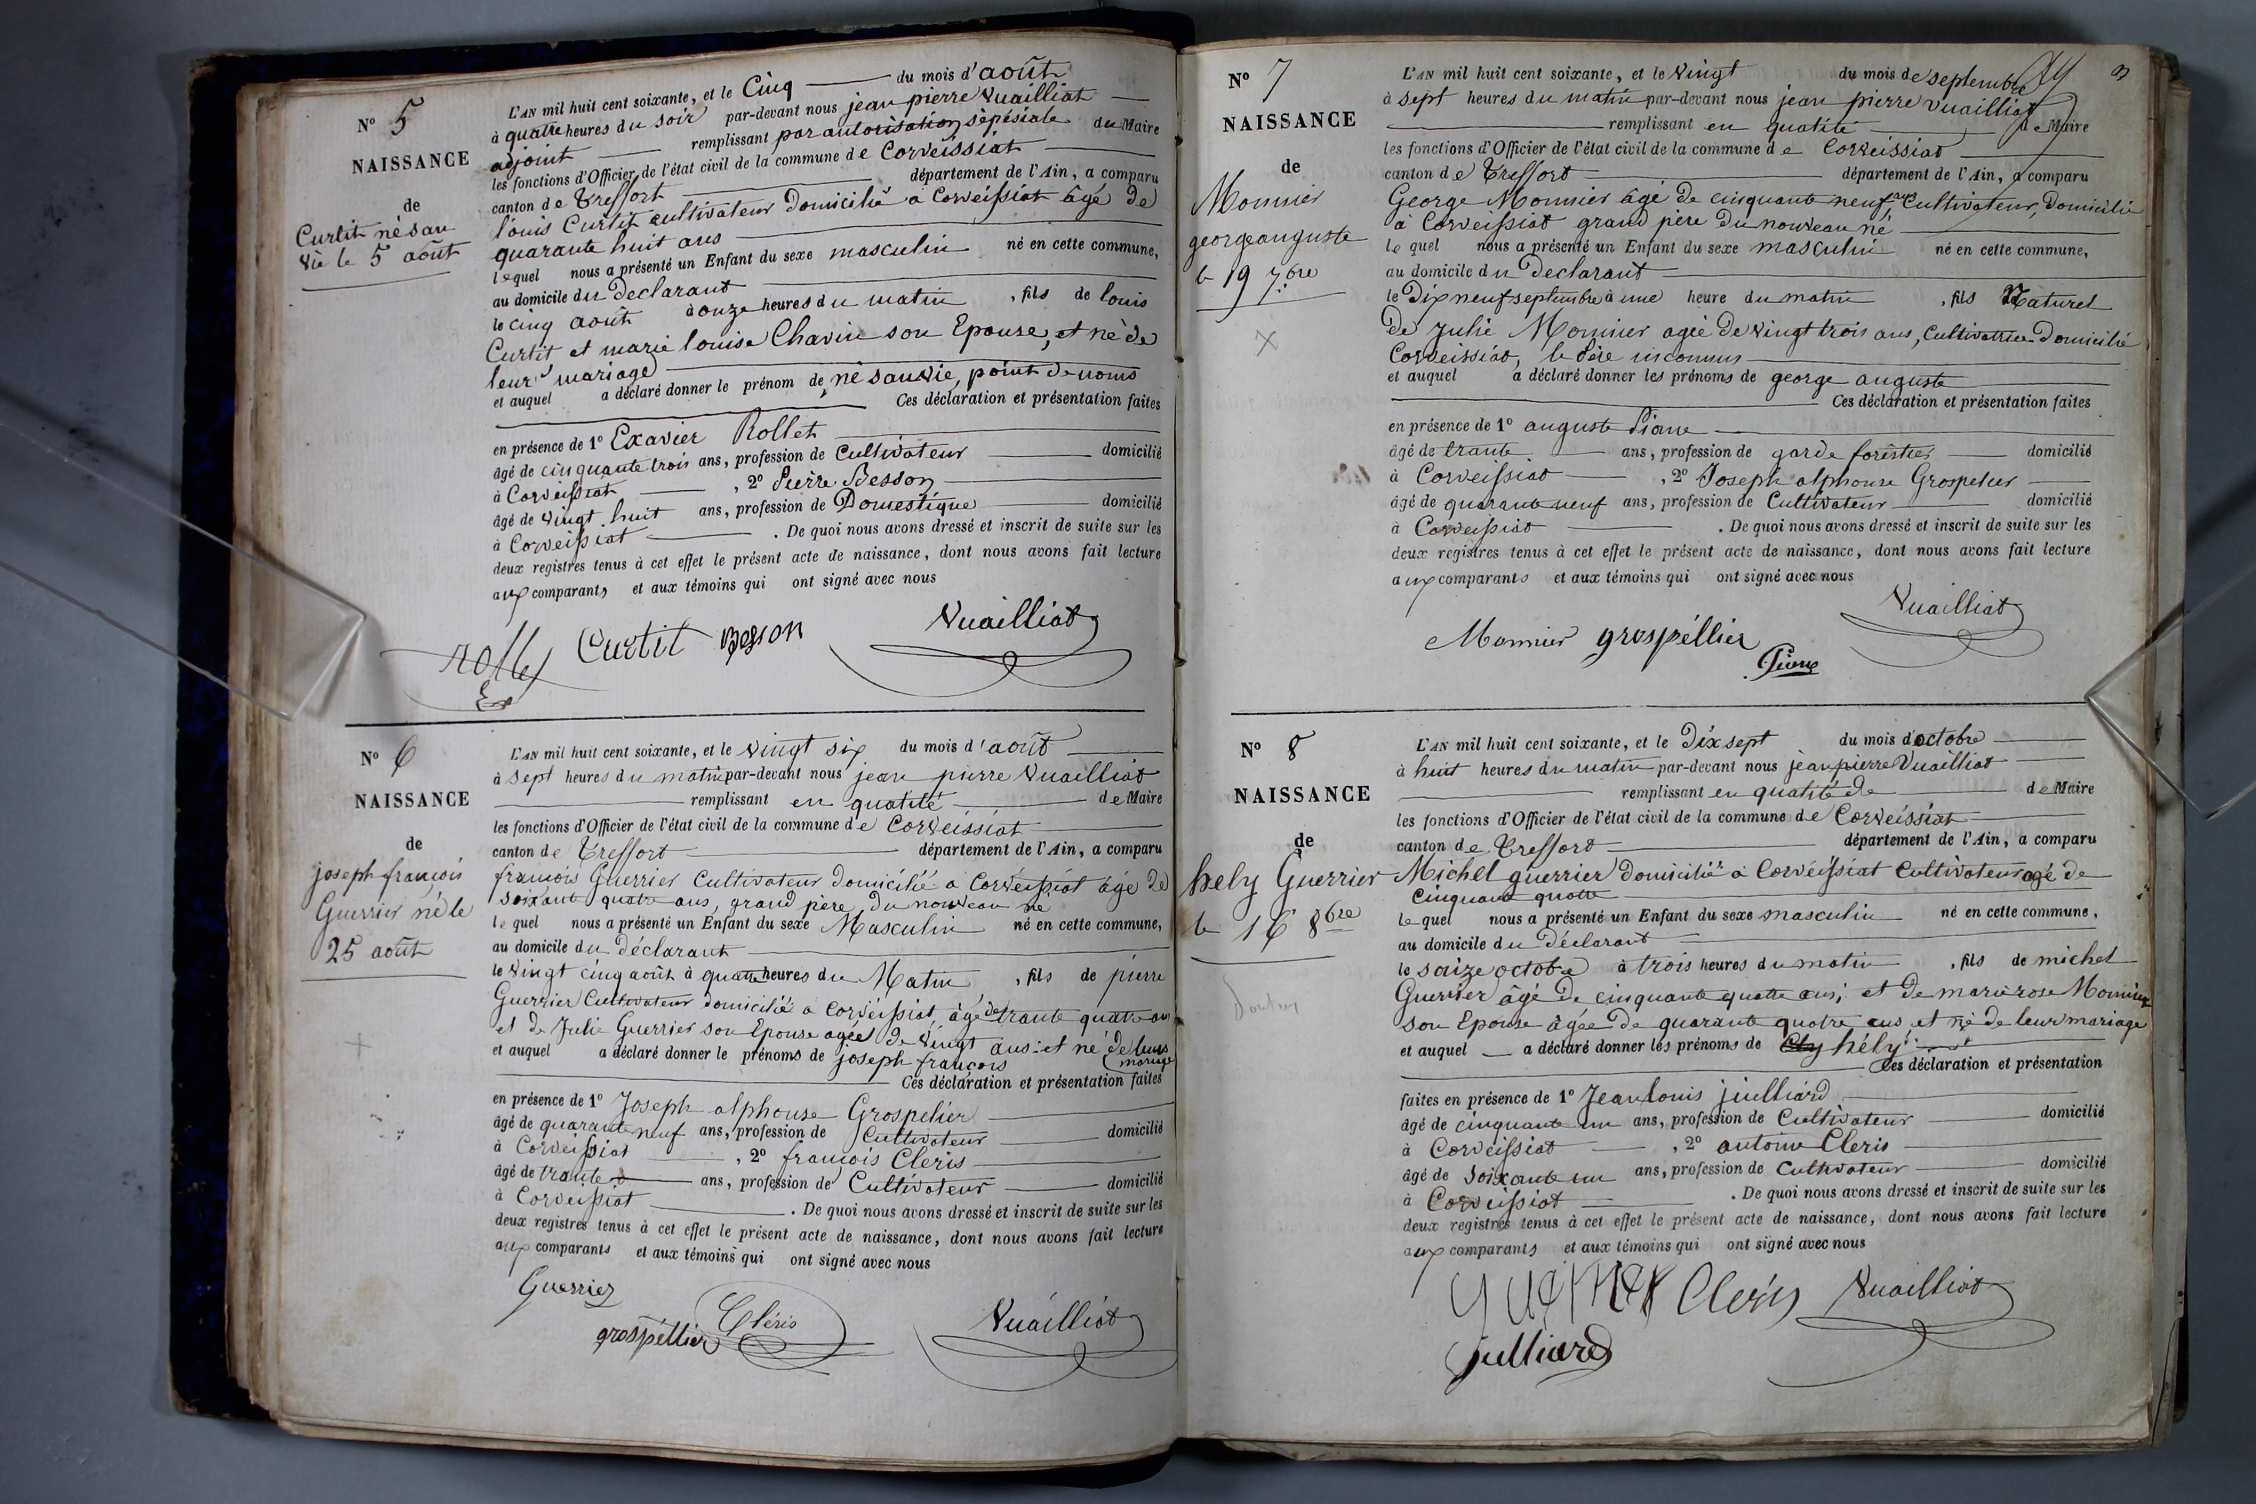 N° 5
NAISSANCE
de
Curtit né san
vie le 5 août
L'AN mil huit cent soixante, et le Cinq du mois d'août
à quatre heures du soir par-devant nous jean pierre Vuailliat
adjoint remplissant par autorisation sépésiale du Maire
les fonctions d'Officier de l'état civil de la commune de Corveissiat
canton de Treffort département de l'Ain, a comparu
louis Curtit cultivateur Domicilié a Corveissiat âgé de
quarante huit ans
lequel nous a présenté un Enfant du sexe masculin né en cette commune,
au domicile du Declarant
le cinq août à onze heures du matin , fils de louis
Curtit et marie louise Chavin son Epouse, et né de
leur mariage
et auquel a déclaré donner le prénom de né sanvie, point de noms
Ces déclaration et présentation faites
en présence de 1° Exavier Rollet
âgé de cinquante trois ans, profession de Cultivateur domicilié
à Corveissiat , 2° Pierre Besson
âgé de vingt huit ans, profession de Domestique domicilié
à Corveissiat . De quoi nous avons dressé et inscrit de suite sur les
deux registres tenus à cet effet le présent acte de naissance, dont nous avons fait lecture
aux comparants et aux témoins qui ont signé avec nous
Vuailliat
Rollet Curtit Besson
Ex
N° 6
NAISSANCE
de
joseph françois
Guerrier né le
25 août
L'AN mil huit cent soixante, et le vingt six du mois d'août
à sept heures du matin par-devant nous jean pierre Vuailliat
remplissant en qualité de Maire
les fonctions d'Officier de l'état civil de la commune de Corveissiat
canton de Treffort département de l'Ain, a comparu
francois Guerrier Cultivateur domicilié a Corveissiat âgé de
soixante quatre ans, grand père du nouveau né
lequel nous a présenté un Enfant du sexe Masculin né en cette commune,
au domicile du déclarant
le vingt cinq août à quatre heures du Matin , fils de pierre
Guerrier Cultivateur domicilié a Corveissiat âgé de trante quatre ans
et de Julie Guerrier son Epouse agée de vingt ans : et né de leurs
mariage
et auquel a déclaré donner le prénoms de joseph françois
Ces déclaration et présentation faites
en présence de 1° Joseph alphonse Grospelier
âgé de quarante neuf ans, profession de Cultivateur domicilié
à Corveissiat , 2° françois Cleris
âgé de trante ans, profession de Cultivateur domicilié
à Corveissiat . De quoi nous avons dressé et inscrit de suite sur les
deux registres tenus à cet effet le présent acte de naissance, dont nous avons fait lecture
aux comparants et aux témoins qui ont signé avec nous
Guerrier
grospéllier Cléris Vuailliat
3
N° 7
NAISSANCE
de
Monnier
george auguste
le 19 7bre
L'AN mil huit cent soixante, et le vingt du mois de septembre
à sept heures du matin par-devant nous jean pierre Vuailliat
remplissant en qualité de Maire
les fonctions d'Officier de l'état civil de la commune de Corveissiat
canton de Treffort département de l'Ain, a comparu
George Monnier âgé de cinquante neuf ans Cultivateur, Domicilié
à Corveissiat grand père du nouveau né
lequel nous a présenté un Enfant du sexe masculin né en cette commune,
au domicile du Declarant
le Dix neuf septembre à une heure du matin , fils Naturel
de Julie Monnier agée de vingt trois ans, Cultivatrice Domicilié
Corveissiat, le Père inconnus
et auquel a déclaré donner les prénoms de george auguste
Ces déclaration et présentation faites
en présence de 1° auguste Pione
âgé de trante ans, profession de garde forestier domicilié
à Corveissiat , 2° Joseph alphonse Grospelier
âgé de quarante neuf ans, profession de Cultivateur domicilié
à Corveissiat . De quoi nous avons dressé et inscrit de suite sur les
deux registres tenus à cet effet le présent acte de naissance, dont nous avons fait lecture
aux comparants et aux témoins qui ont signé avec nous
Vuailliat
Monnier grospéllier
Pione
N° 8
NAISSANCE
de
hely Guerrier
le 16 8bre
L'AN mil huit cent soixante, et le Dix sept du mois d'octobre
à huit heures du matin par-devant nous jean pierre Vuailliat
remplissant en qualité de de Maire
les fonctions d'Officier de l'état civil de la commune de Corveissiat
canton de Treffort département de l'Ain, a comparu
Michel guerrier Domicilié a Corveissiat Cultivateur agé de
Cinquante quatre
lequel nous a présenté un Enfant du sexe masculin né en cette commune,
au domicile du Déclarant
le saize octobre à trois heures du matin , fils de michel
Guerrier âgé de cinquante quatre ans, et de marie rose Monnier
son Epouse âgée de quarante quatre ans et né de leur mariage
et auquel a déclaré donner les prénoms de Ely hély
Ces déclaration et présentation
faites en présence de 1° Jean louis juilliard
âgé de cinquante un ans, profession de Cultivateur domicilié
à Corveissiat , 2° antoine Cleris
âgé de Soixante un ans, profession de Cultivateur domicilié
à Corveissiat . De quoi nous avons dressé et inscrit de suite sur les
deux registres tenus à cet effet le présent acte de naissance, dont nous avons fait lecture
aux comparants et aux témoins qui ont signé avec nous
guerrier Cleris Vuailliat
juilliard